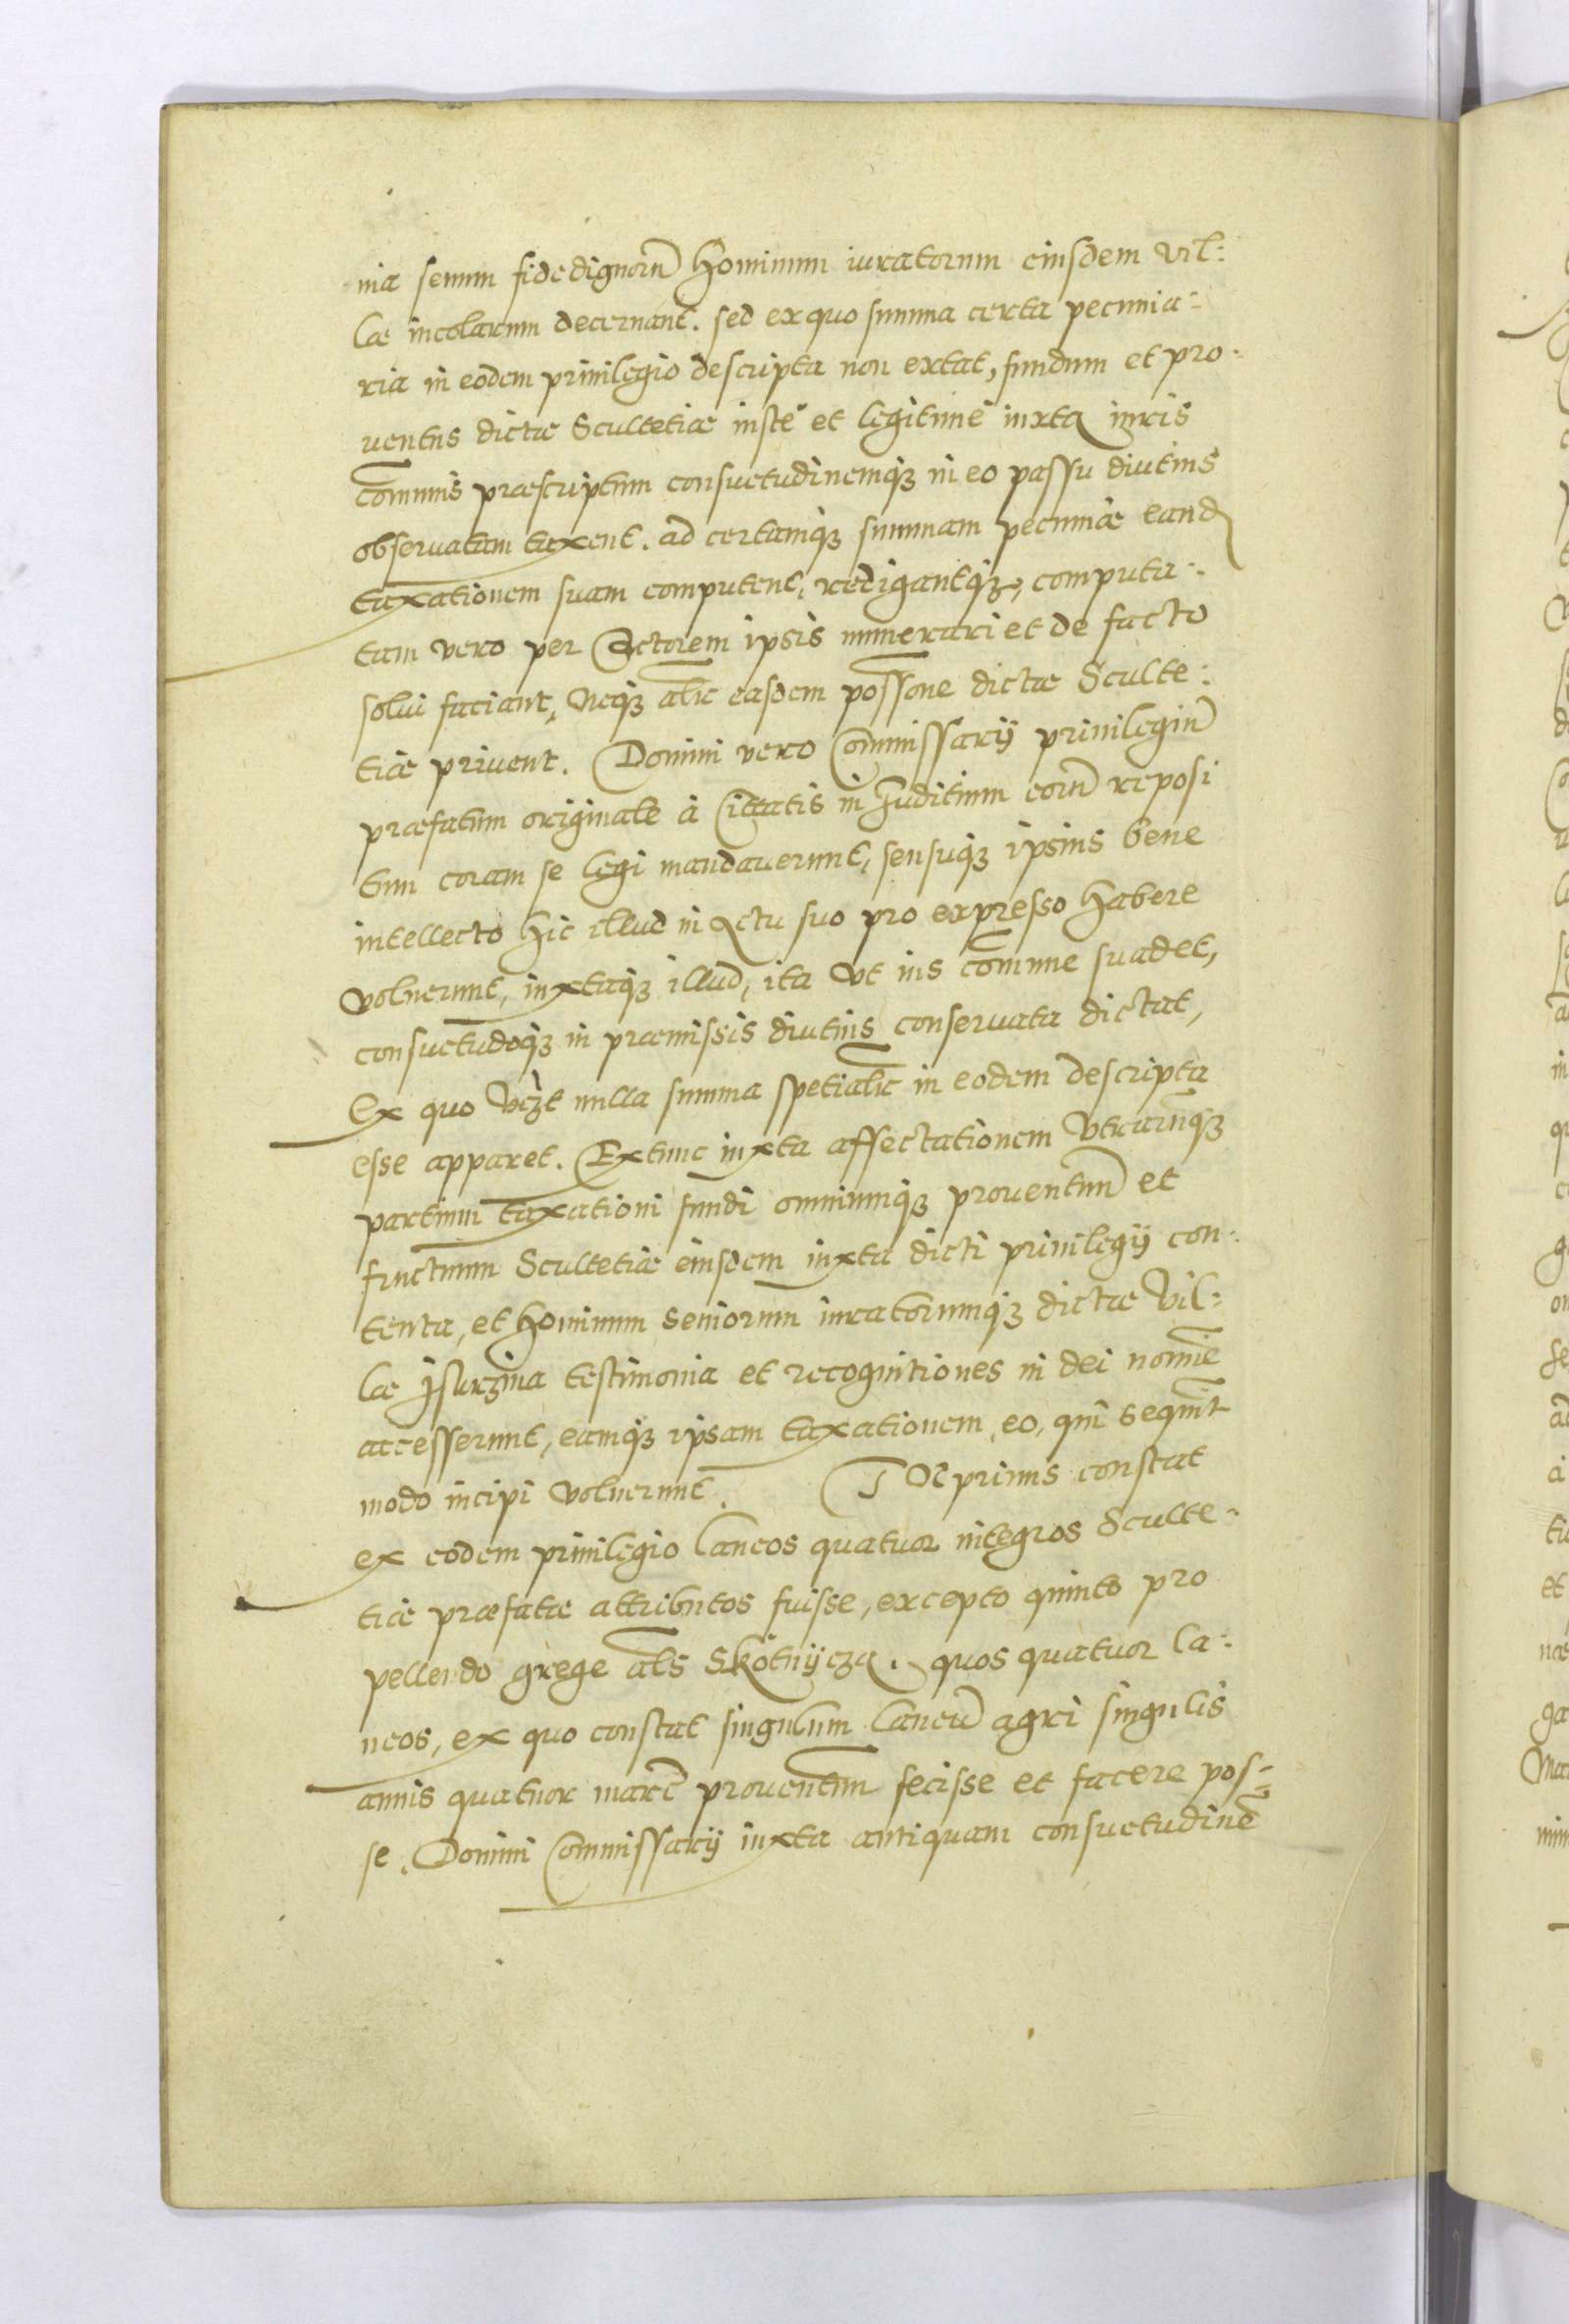 nia senum fidedignorū Hominum iuratorum eiusdem Vil:
læ incolarum decernant. sed ex quo summa certa pecunia:
ria in eodem priuilegio descripta non extat, fundum et pro:
uentus dictæ Scultetiæ iustè et legitimè iuxta iuris
com̄unis præscriptum consuetudinemq3 in eo passu diutius
obseruatam taxent. ad certamq3 summam pecuniæ eand
taxationem suam computent, redigantq3, computa:
tam vero per Actorem ipsis numerari et de facto
solui faciant, Neq3 alr̄ easdem poss̄one dictæ Sculte:
tiæ priuent. Domini vero Com̄missarij priuilegiū
præfatum originale à Citatis in Iuditium eorū reposi
tum coram se legi mandauerunt, sensuq3 ipsius bene
intellecto hic illud in Actu suo pro expresso habere
voluerunt, iuxtaq3 illud, ita Vt ius com̄une suadet,
consuetudoq3 in præmissis diutius conseruata dictat,
Ex quo Vc3t nulla summa spetialr̄ in eodem descripta
esse apparet. Extunc iuxta affectationem Vtrarūq3
partium taxationi fundi omniumq3 prouentuū et
fructuum Scultetiæ eiusdem iuxta dicti priuilegij con:
tenta, et Hominum seniorum iuratorumq3 dictæ Vil:
læ testimonia et recognitiones in dei nomīe
accesserunt, eamq3 ipsam taxationem eo, quī sequit̄
modo incipi voluerunt. IN primis constat
ex eodem priuilegio laneos quatuor integros Sculte:
tiæ præfatæ attributos fuisse, excepto quinto pro
pellendo grege als̄ Skotnÿcza. quos quatuor la:
neos, ex quo constat singulum laneū agri singulis
annis quatuor marc̄ prouentum fecisse et facere pos:
se. Domini Com̄missarij iuxta antiquam consuetudinē